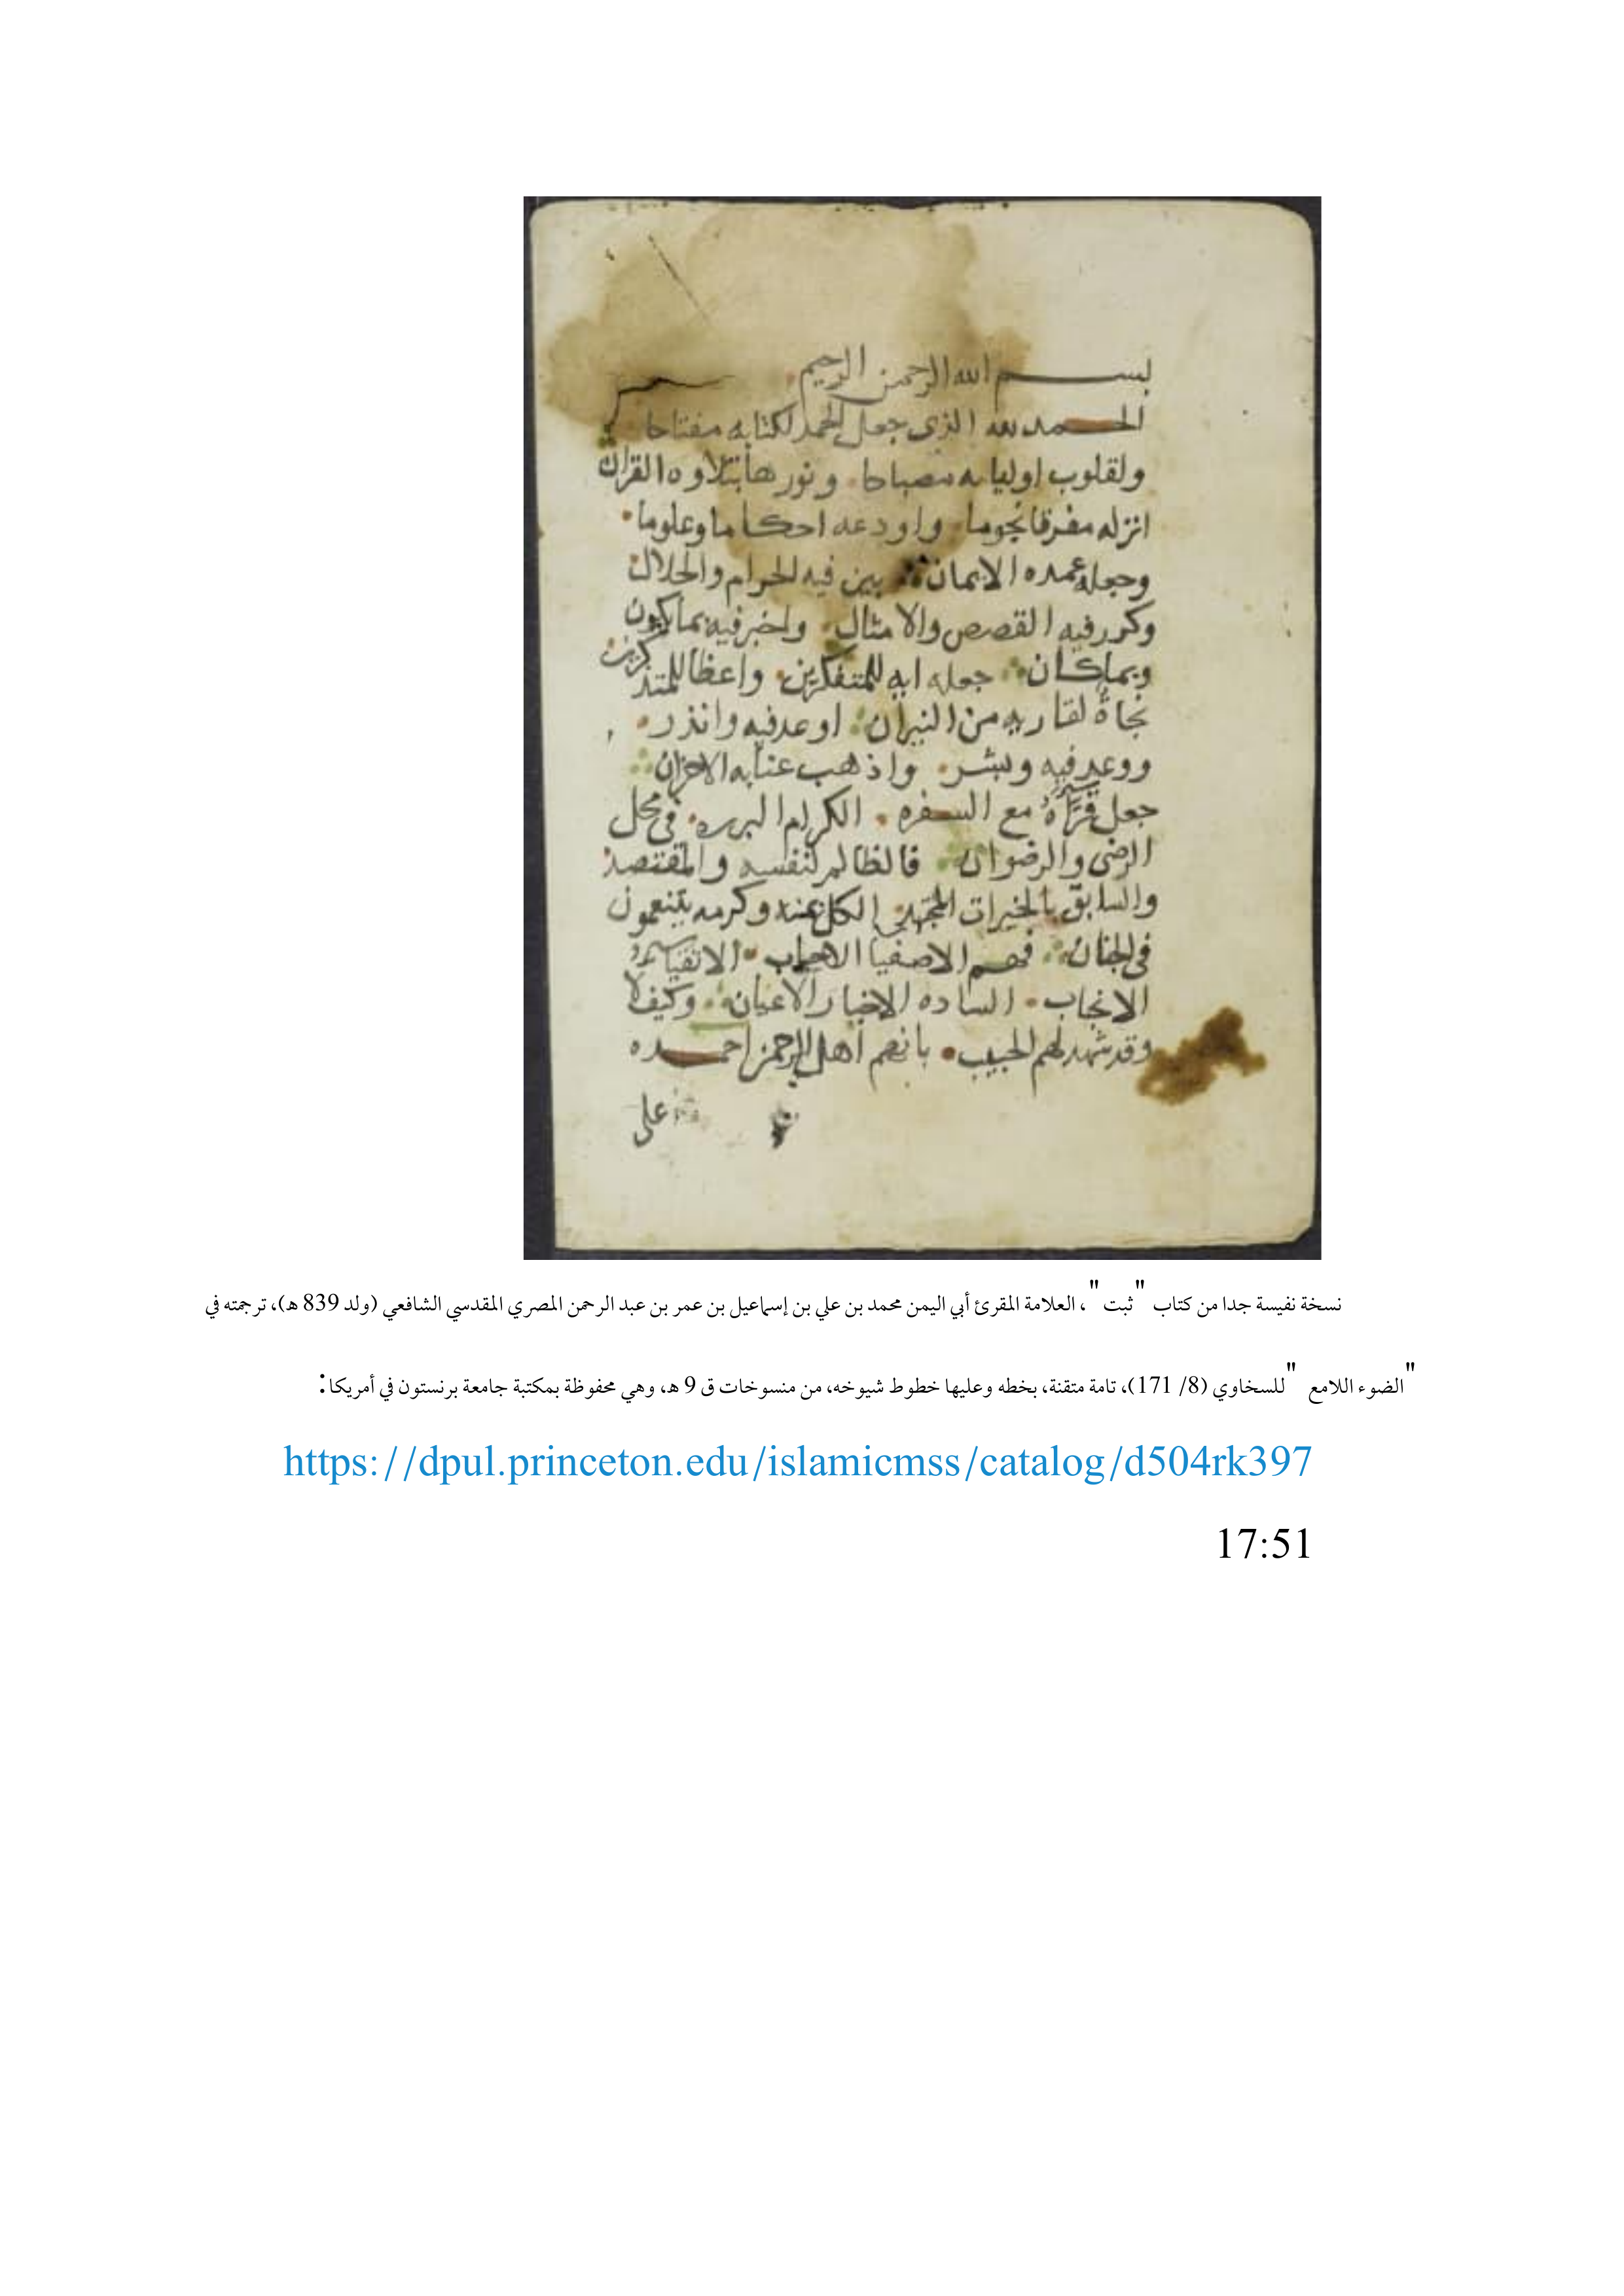 بسم الله الرحمن الرحيم
الحمد لله الذي جعل الحمد لكتابه مفتاحا
ولقلوب اوليايه مصباحا ونورها بتلاوه القران
انزله مفرقا نجوما واودعه احكاما وعلوما
وجعله عمده الايمان بين فيه الحرام والحلال
وكرر فيه القصص والامثال واخبر فيه بما يكون
وبما كان جعله ايه للمتفكرين واعظا للمتذكرين
نجاة لقاريه من النيران اوعد فيه وانذر
ووعد فيه وبشر واذهب عنا به الاحزان
جعل قراه مع السفره الكرام البرره في محل
الرضى والرضوان فالظالم لنفسه والمقتصد
والسابق بالخيرات الكل وكرمه يتنعمون
في الجنان فهم الاصفيا الاحباب الاتقيا
الانجاب الساده الاخيار الاعيان وكيف لا
وقد شهد لهم الحبيب بانهم اهل الرحمن احمده
على
نسخة نفيسة جدا من كتاب "ثبت"، العلامة المقرئ أبي اليمن محمد بن علي بن إسماعيل بن عمر بن عبد الرحمن المصري المقدسي الشافعي (ولد 839 هـ)، ترجمته في
"الضوء اللامع" للسخاوي (8/ 171)، تامة متقنة، بخطه وعليها خطوط شيوخه، من منسوخات ق 9 هـ، وهي محفوظة بمكتبة جامعة برنستون في أمريكا:
https://dpul.princeton.edu/islamicmss/catalog/d504rk397
17:51